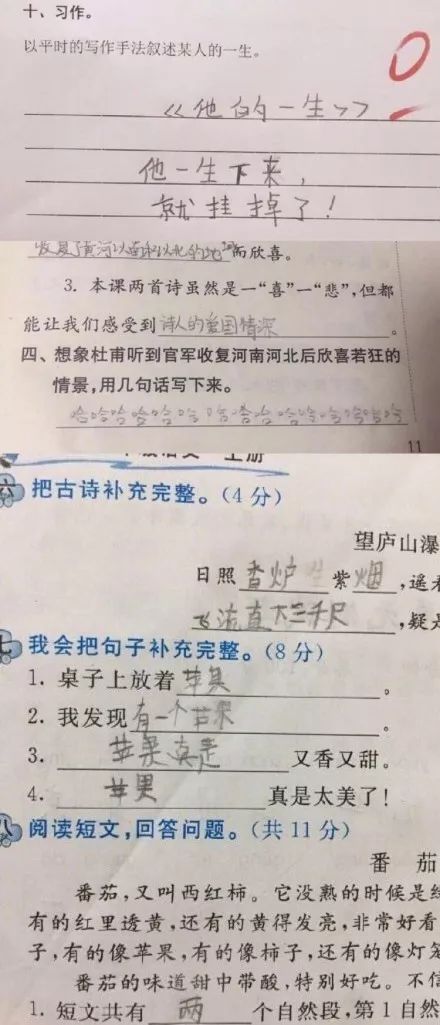 十、习作。
以平时的写作手法叙述某人的一生。
0
《他的一生》
他一生下来，
就挂掉了！
收复了黄河以南和以北的地而欣喜。
3. 本课两首诗虽然是一“喜”一“悲”，但都
能让我们感受到诗人的爱国情深。
四、想象杜甫听到官军收复河南河北后欣喜若狂的
情景，用几句话写下来。
哈哈哈哈哈哈哈哈哈哈哈哈哈哈哈哈
11
上册
六 把古诗补充完整。（4分）
望庐山瀑
日照香炉生紫烟，遥
飞流直下三千尺，疑
七 我会把句子补充完整。（8分）
1. 桌子上放着苹果。
2. 我发现有一个苹果。
3. 苹果真是又香又甜。
4. 苹果真是太美了！
八 阅读短文，回答问题。（共11分）
番 茄
番茄，又叫西红柿。它没熟的时候是
有的红里透黄，还有的黄得发亮，非常好看
子，有的像苹果，有的像柿子，还有的像灯笼
番茄的味道甜中带酸，特别好吃。不信
1. 短文共有两个自然段，第1自然